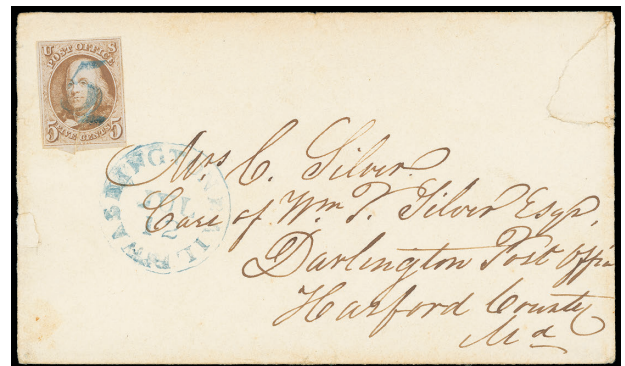 U S
POST OFFICE
5
5 FIVE CENTS 5
WASHINGTON RAIL RD
JUL
12
Mrs C. Silver.
Care of Wm. F. Silver Esqr,
Darlington Post Offic
Harford County
Md